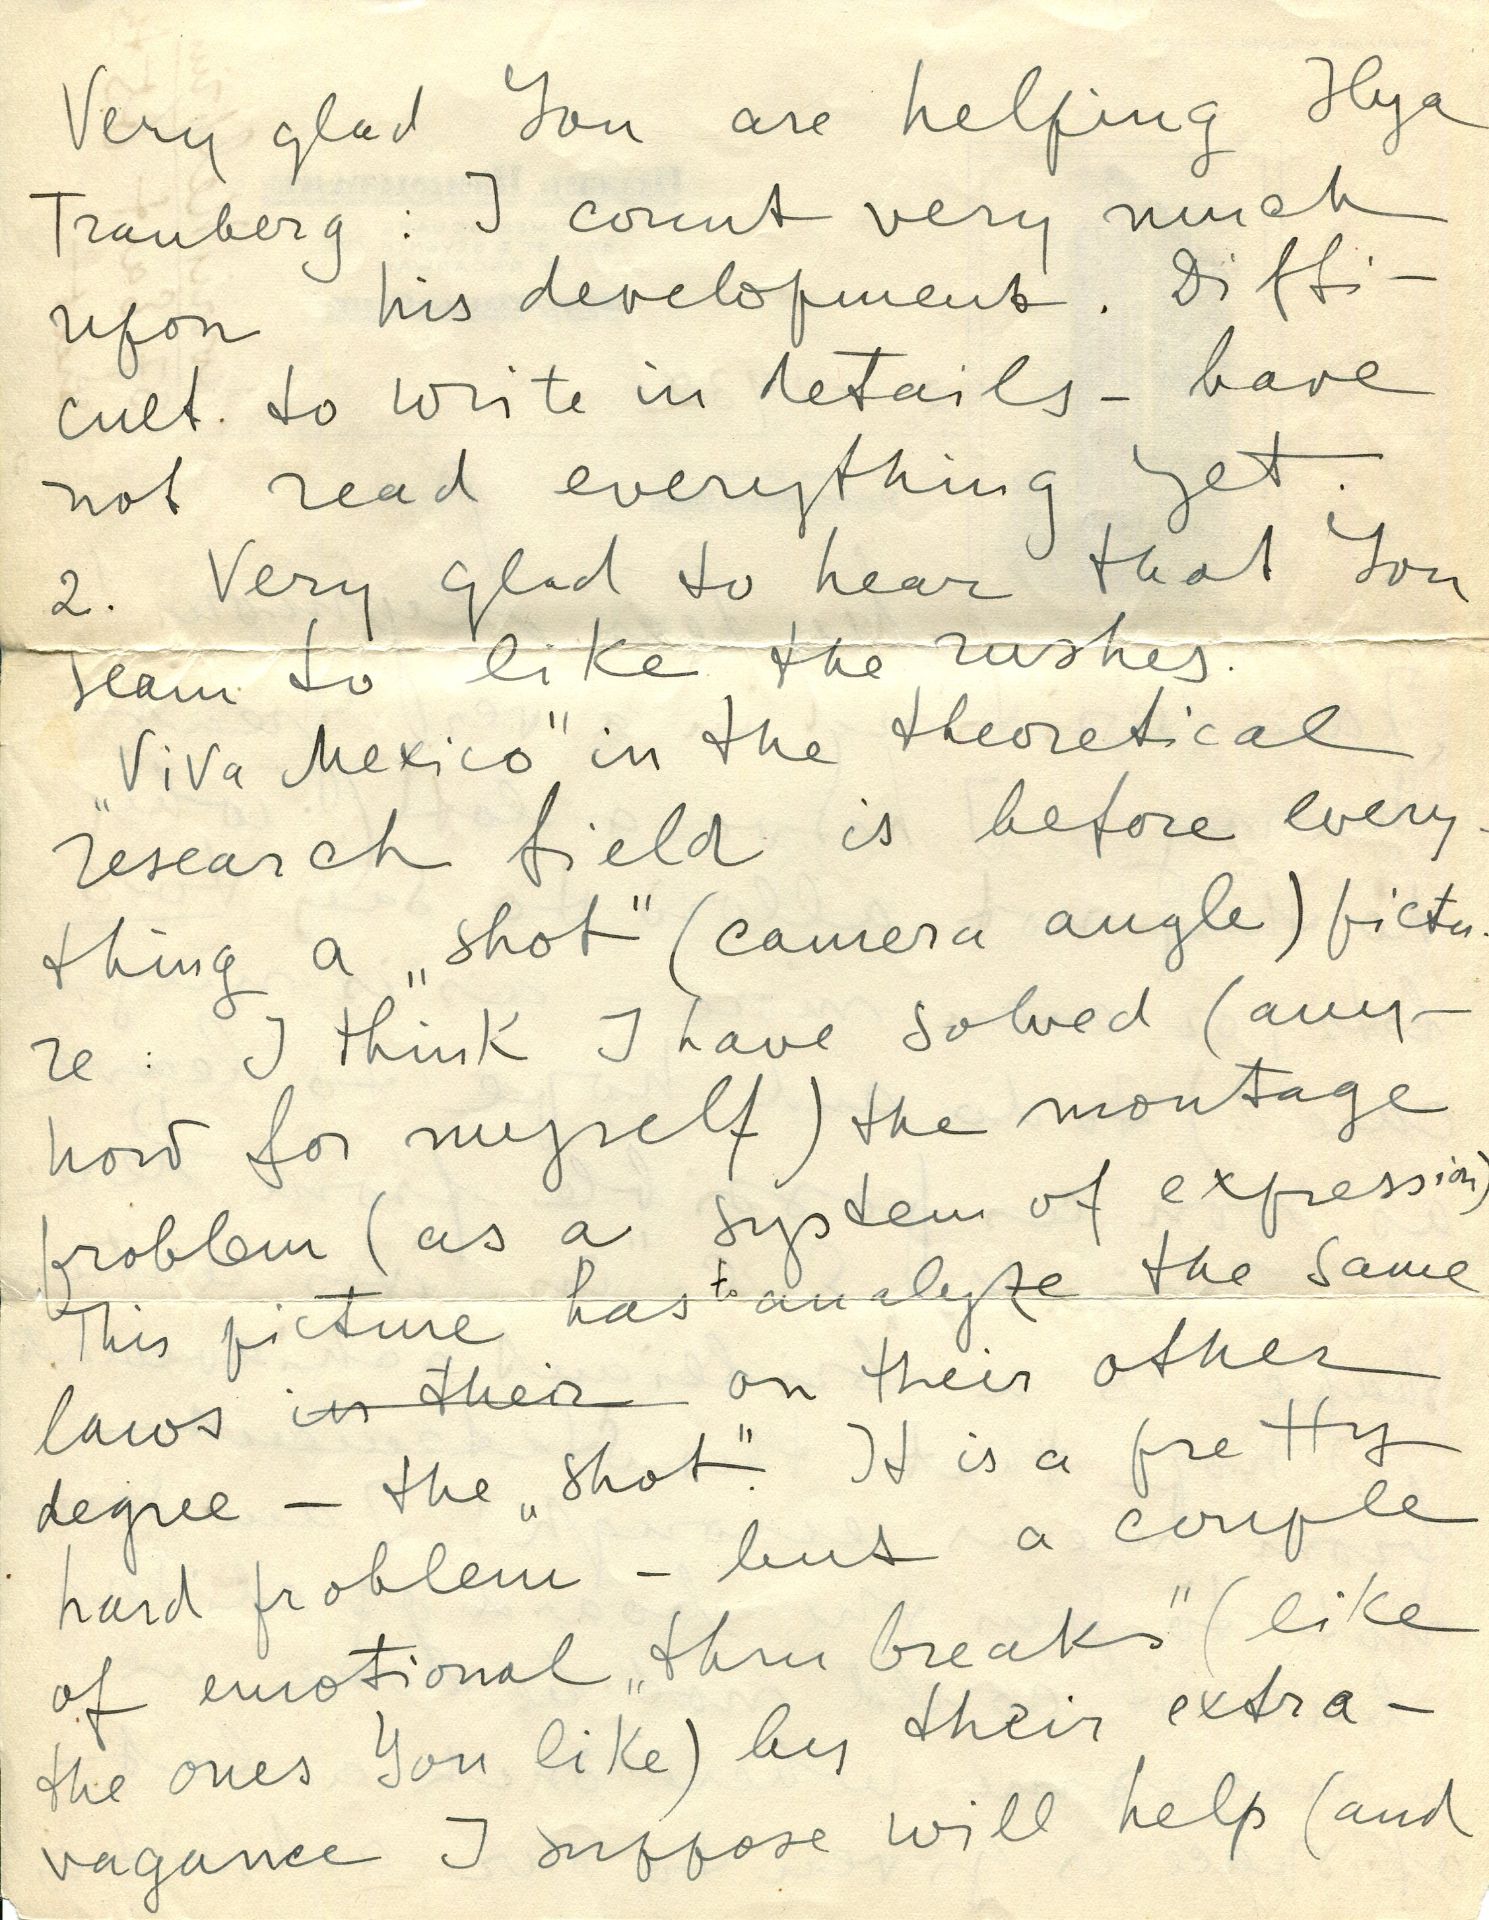 Very glad You are helping Ilya
Trauberg : I count very much
upon his development. Diffi-
cult. to write in details - have
not read everything yet.
2. Very glad to hear that You
seam to like the rushes.
„Viva Mexico" in the theoretical
research field is before every-
thing a „shot" (camera angle) pictu-
re : I think I have solved (any-
how for myself) the montage
problem (as a system of expression)
This picture has to analyze the same
laws in their on their other
degree - the „shot". It is a pretty
hard problem - but a couple
of emotional „thru breaks" (like
the ones You like) by their extra-
vagance I suppose will help (and